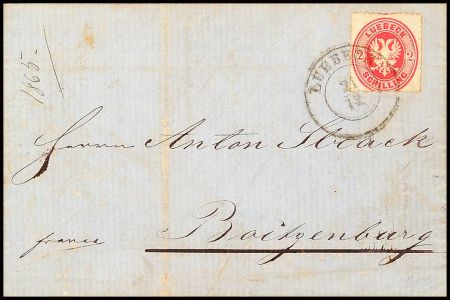 1865.
LUEBECK
2 2
SCHILLING
LUEBECK
Herrn Anton Strack
franco
Boitzenburg